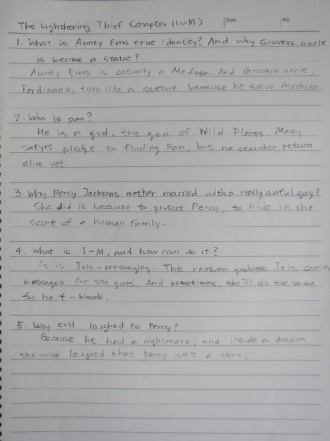 The Lightnering Thief (Chapter 11-M)
Date
No.
1. What is Aunty Ems true identity? And why Grovers uncle
is become a statue?
Aunty Ems is actually a Medusa. And Grovers uncle,
Ferdinand, turn into a statue because he saw Medusa.
2. Who is pan?
He is a god, the god of Wild Places. Many
satyrs pledge to finding Pan, but no searcher return
alive yet.
3. Why Percy Jacksons mother married with a really awful guy?
She did it because to protect Percy, to hide in the
scent of a human family.
4. What is I-M, and how can do it?
It is Iris-messaging. The rainbow goddess Iris carries
messages for the gods. And sometimes, she'll do the same
for half-bloods.
5. Why evil laughed to Percy?
Because he had a nightmare, and inside a dream
the voice laughed that Percy isn't a hero.